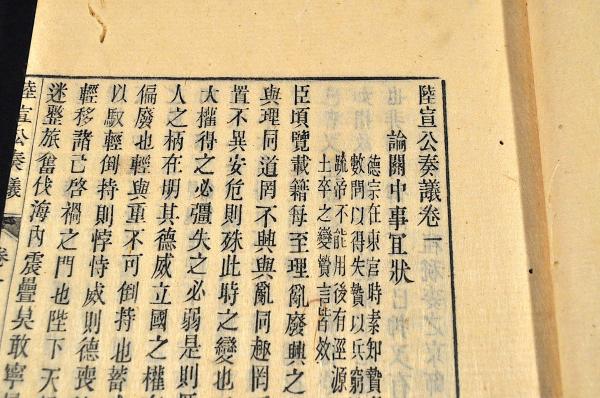 陸宣公奏議卷一
論關中事宜狀
德宗在東宮時素知贄
數問以得失贄以兵窮
疏帝不能用後有涇源
士卒之變贄言皆效
臣頃覽載籍每至理亂廢興之
與理同道罔不興與亂同趣罔
置不異安危則殊此時之變也
大權得之必彊失之必弱是則
人之柄在明其德威立國之權
偏廢也輕與重不可倒持也蓄
以馭輕倒持則悖恃威則德喪
輕移諸己啓禍之門也陛下天
迷整旅奮伐海內震疊莫敢寧
陸宣公奏議 卷一